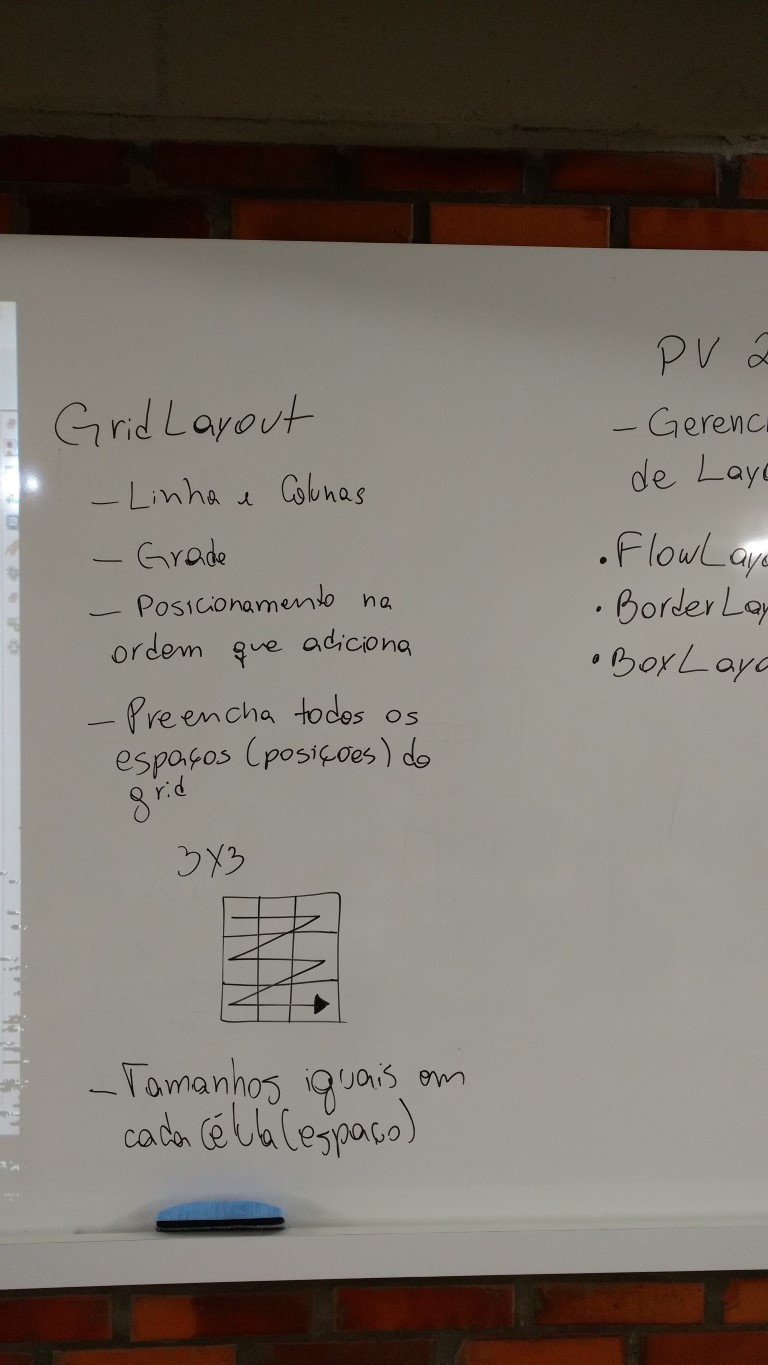 GridLayout
- Linha e Colunas
- Grade
- Posicionamento na
ordem que adiciona
- Preencha todos os
espaços (posições) do
grid
3X3
- Tamanhos iguais em
cada célula (espaço)
PV 2
- Gerenc
de Layo
• FlowLayo
• BorderLay
• BoxLayo